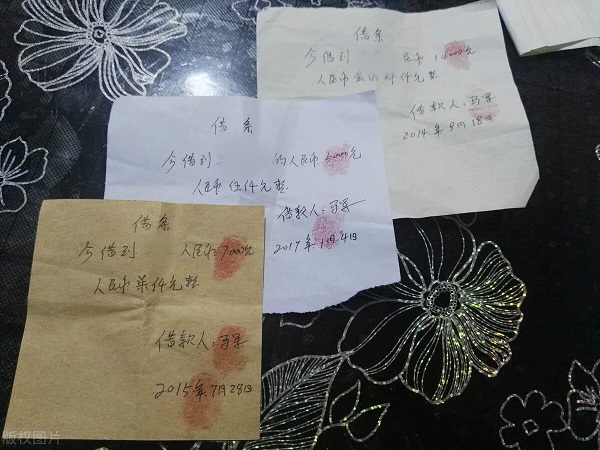 借条
今借到 民币
人民币 仟元整
借款人:
2014年9月18日
借条
今借到 的人民币 5000元
人民币伍仟元整
借款人:
2017年1月4日
借条
今借到 人民币:7000元
人民币柒仟元整
借款人:
2015年7月28日
版权图片